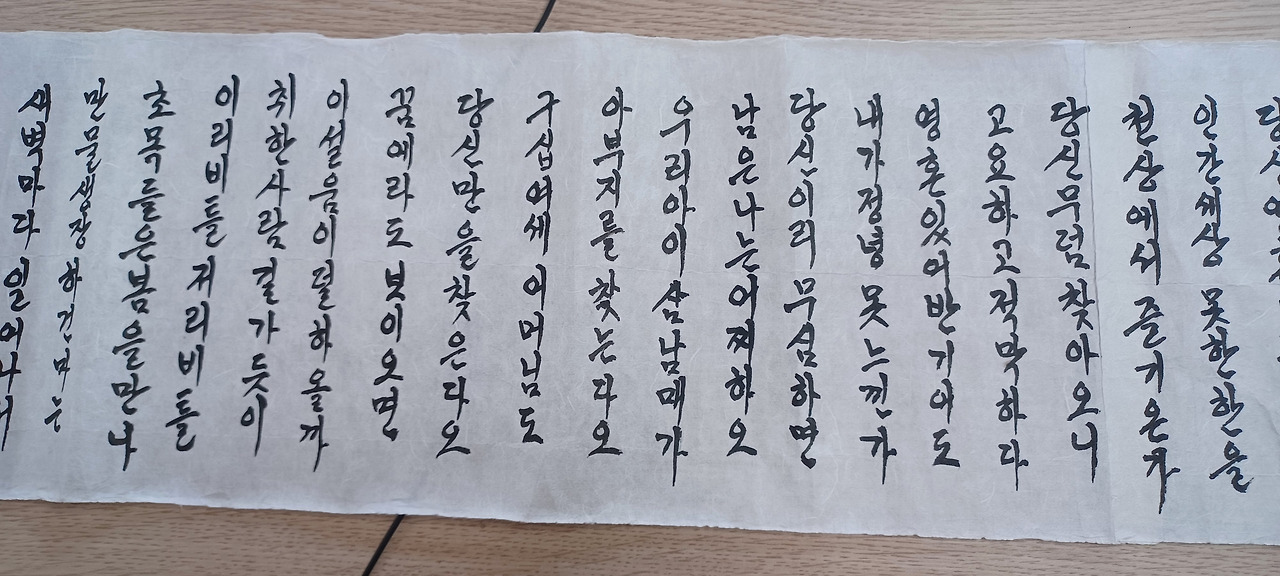 인간세상 못한한을
천상에서 즐기은가
당신무덤 찾아오니
고요하고 적막하다
영혼있어 반기어도
내가정녕 못느낀가
당신이리 무심하면
남은나는 어찌하오
우리아이 삼남매가
아부지를 찾는다오
구십여세 어머님도
당신만을 찾은다오
꿈에라도 봇이오면
이설움이 덜하올까
취한사람 걸가듯이
이리비틀 저리비틀
초목들은 봄을만나
만물생장 하건마는
새벽마다 일어나